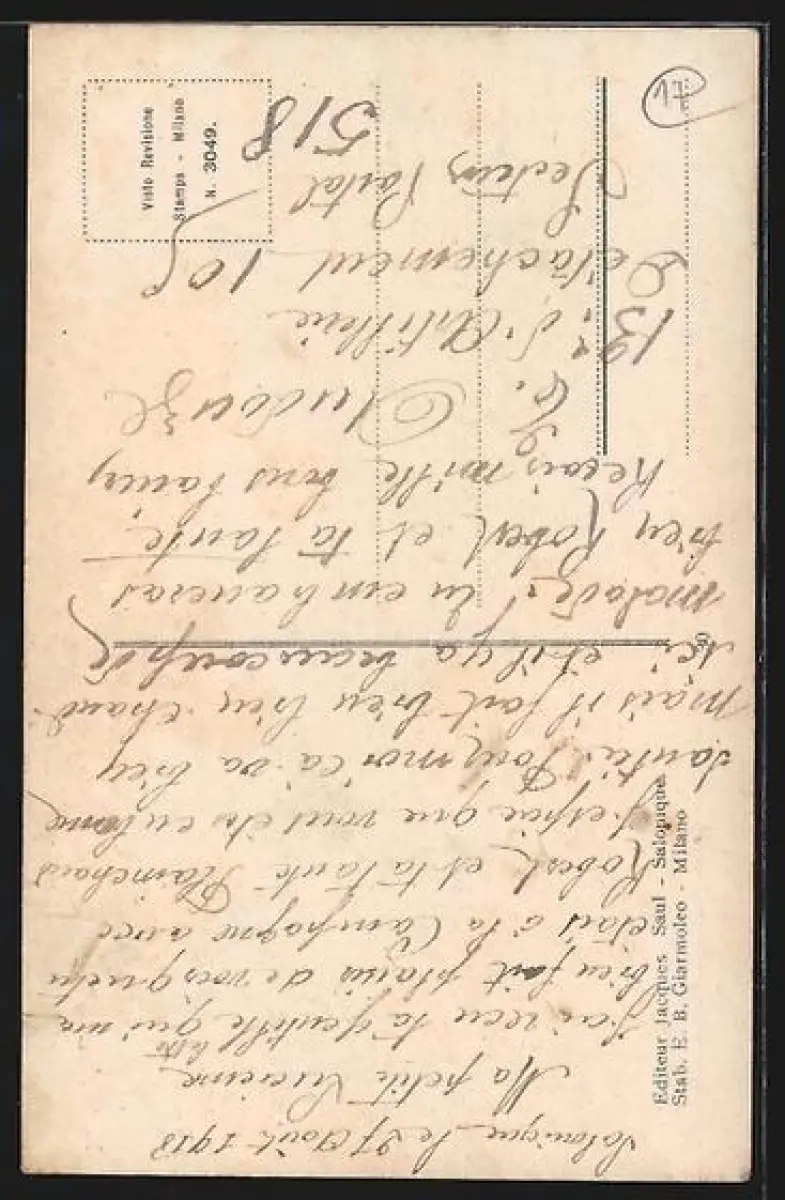 Salonique le 27 Août 1918
Ma petite Lucienne
J'ai reçu ta gentille lettre qui m'a
bien fait plaisir de voir que tu
étais à la Campagne avec
Robert et ta tante
J'espère que vous êtes en bonne
santé. Pour moi ça va bien
mais il fait bien bien chaud
ici et il y a beaucoup de
malades. Tu embrasseras
bien Robert et ta tante.
Reçois mille bons baisers
Audouze
19e d'Artillerie
Détachement 105
Secteur Postal
518
17
Visto Revisione
Stampa - Milano
N. 3049.
Editeur Jacques Saul - Salonique
Stab. E. B. Giarmoleo - Milano